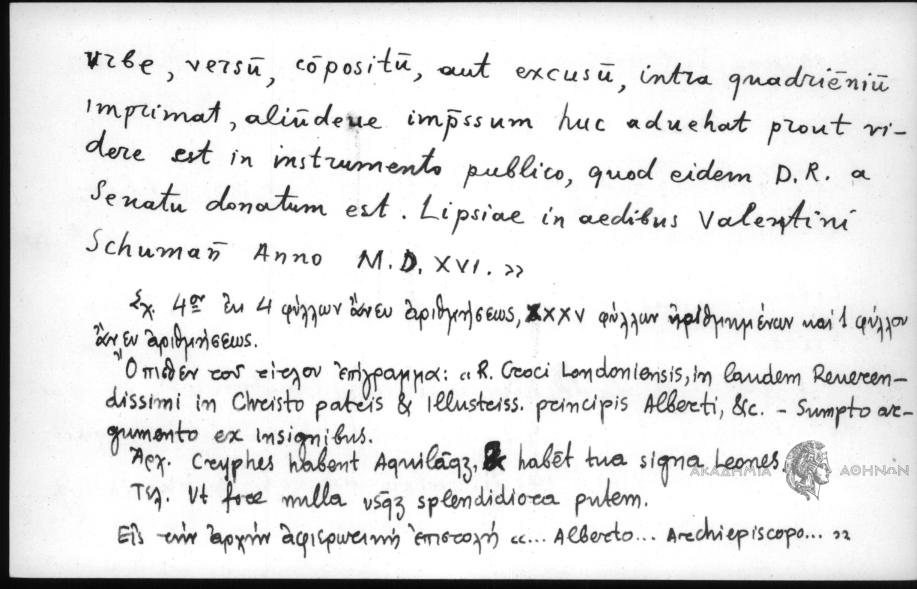 urbe, versū, cōpositū, aut excusū, intra quadriēniū
imprimat, aliūdeue imp̄ssum huc aduehat prout vi-
dere est in instrumento publico, quod eidem D. R. a
Senatu donatum est. Lipsiae in aedibus Valentini
Schumañ Anno M. D. XVI. »
Σχ. 4ον ἐκ 4 φύλλων ἄνευ ἀριθμήσεως, XXXV φύλλων ἠριθμημένων καὶ 1 φύλλον
ἄνευ ἀριθμήσεως.
Ὄπισθεν τοῦ τίτλου ἐπίγραμμα: « R. Croci Londoniensis, in laudem Reueren-
dissimi in Christo patris & Illustriss. principis Alberti, &c. - Sumpto ar-
gumento ex insignibus.
Ἀρχ. Cryphes habent Aquilāqz, & habēt tua signa Leones.
Τελ. Vt nulla vsāqz splendidiora putem.
Εἰς τὴν ἀρχὴν ἀφιερωτικὴ ἐπιστολὴ «... Alberto... Archiepiscopo... »
ΑΚΑΔΗΜΙΑ ΑΘΗΝΩΝ